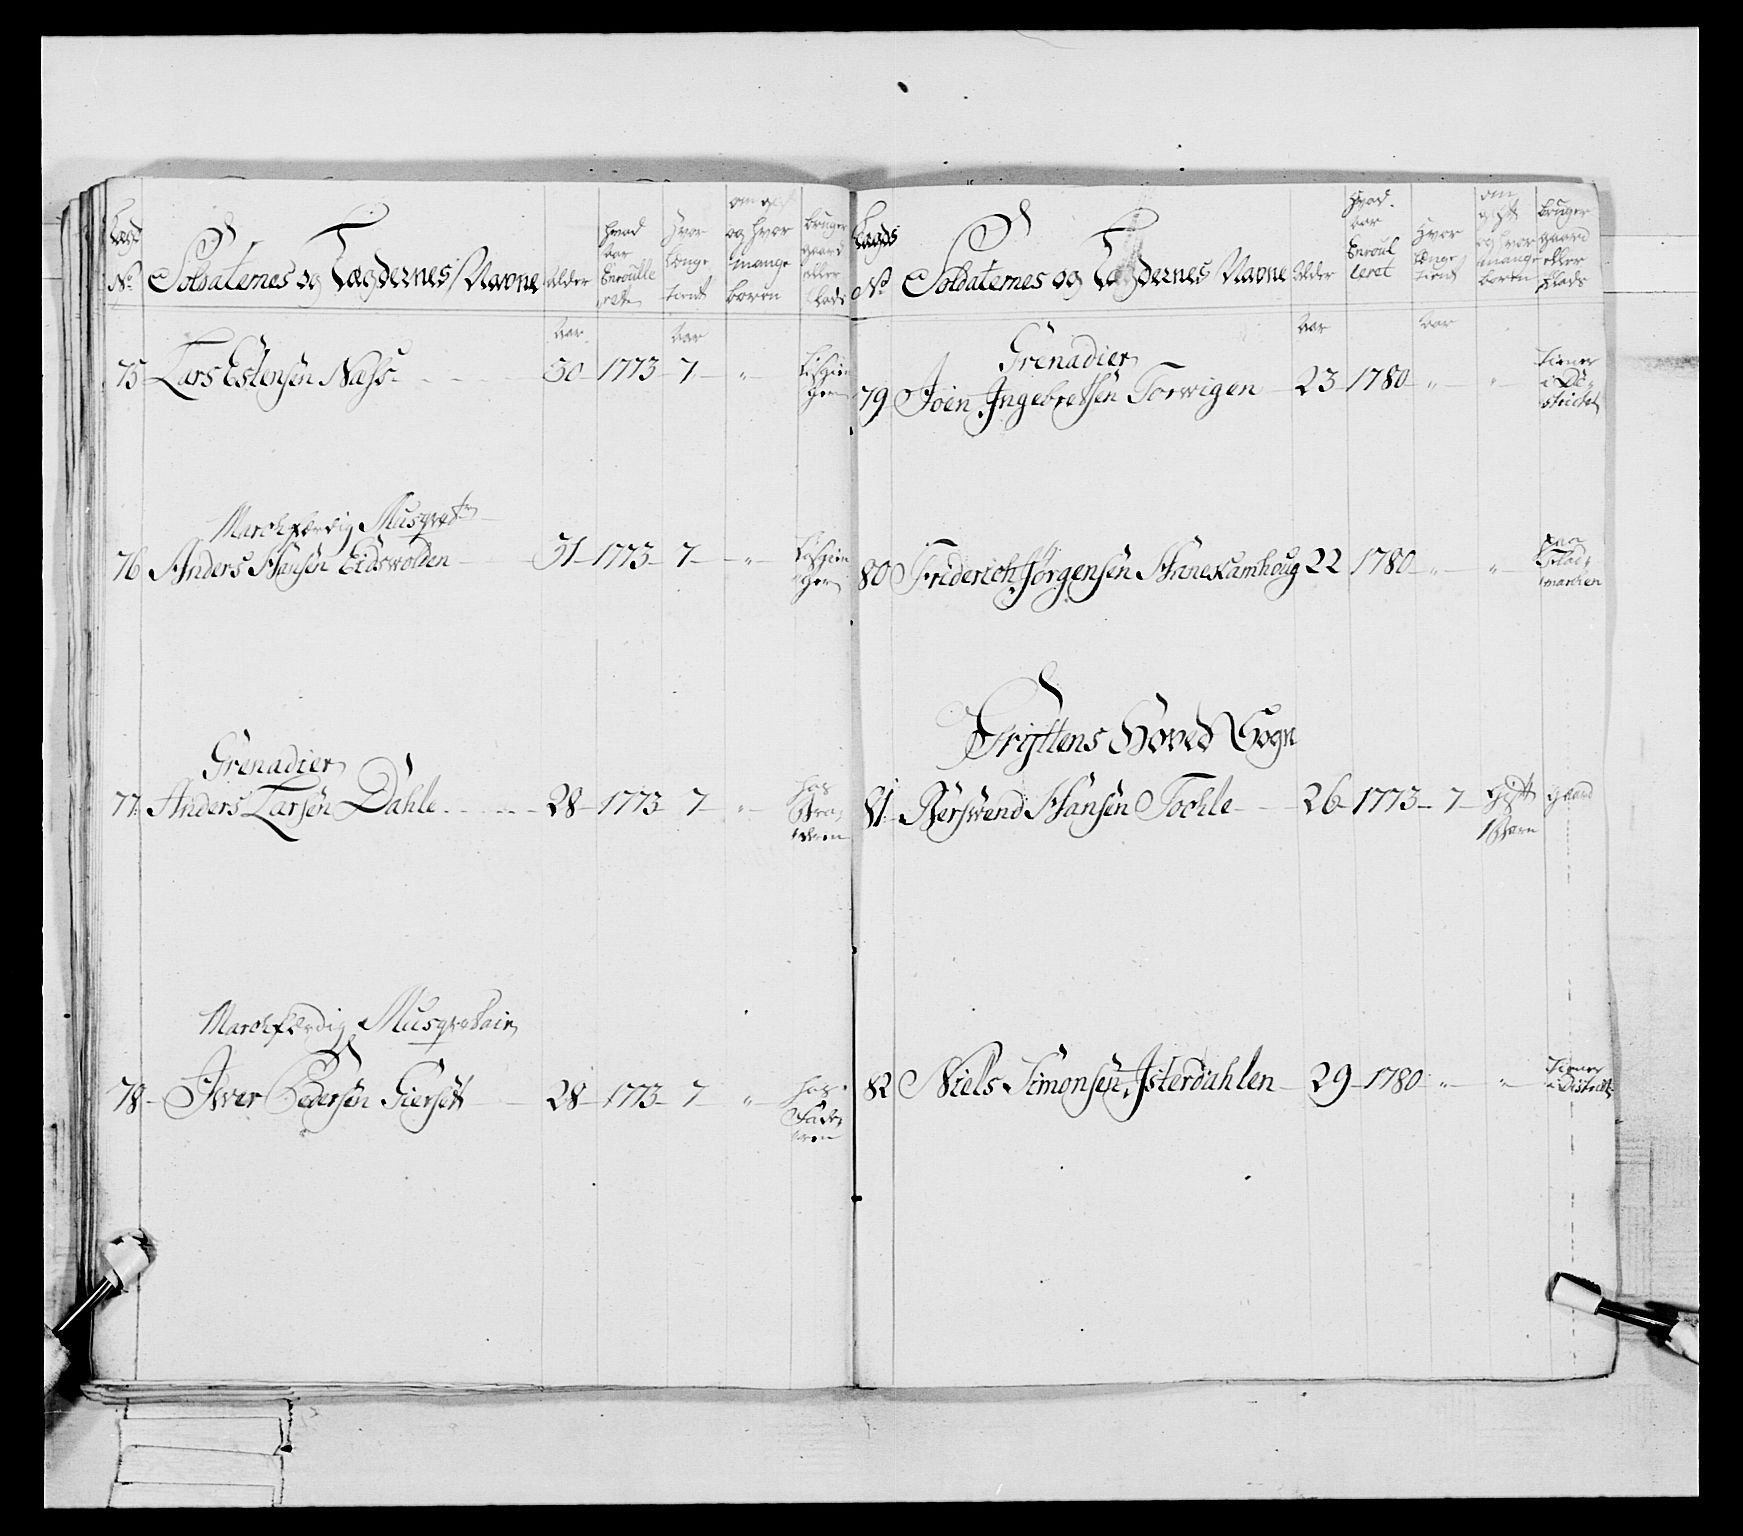 Lægd No Soldaternes og Lægdernes Navne Alder hvad Aar Enroulleret Hvor længe tient om gift og hvor mange børn bruger gaard eller Plads
Aar Aar
75 Lars Estensen Næss 30 1773 7 "
Marchfærdig Musqvetr
76 Anders Hansen Eidswolden 31 1773 7 "
Grenadier
77 Anders Larsen Dahle 28 1773 7 " hos
Marchfærdig Musqvetair
78 Iver Pedersen Gierset 28 1773 7 " hos Faderen
Lægds No Soldaternes og Lægdernes Navne Alder hvad Aar Enroulleret Hvor længe tient om gift og hvor mange børn bruger gaard eller Plads
Aar Aar
Grenadier
79 Joen Ingebretsen Torwigen 23 1780 " " tiener i Districtet
80 Friderich Jörgensen Hanekamhoug 22 1780 " "
Gryttens Hoved Sogn
81 Berswend Hansen Tochle 26 1773 7 Gift 1 Barn Gaard
82 Niels Simonsen Isterdahlen 29 1780 " " Tiener i District